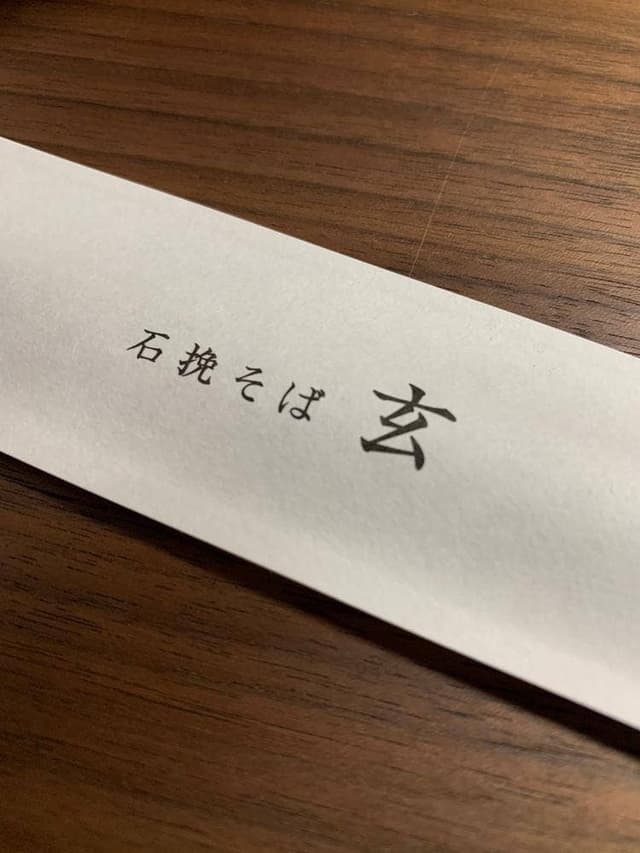 石挽そば 玄